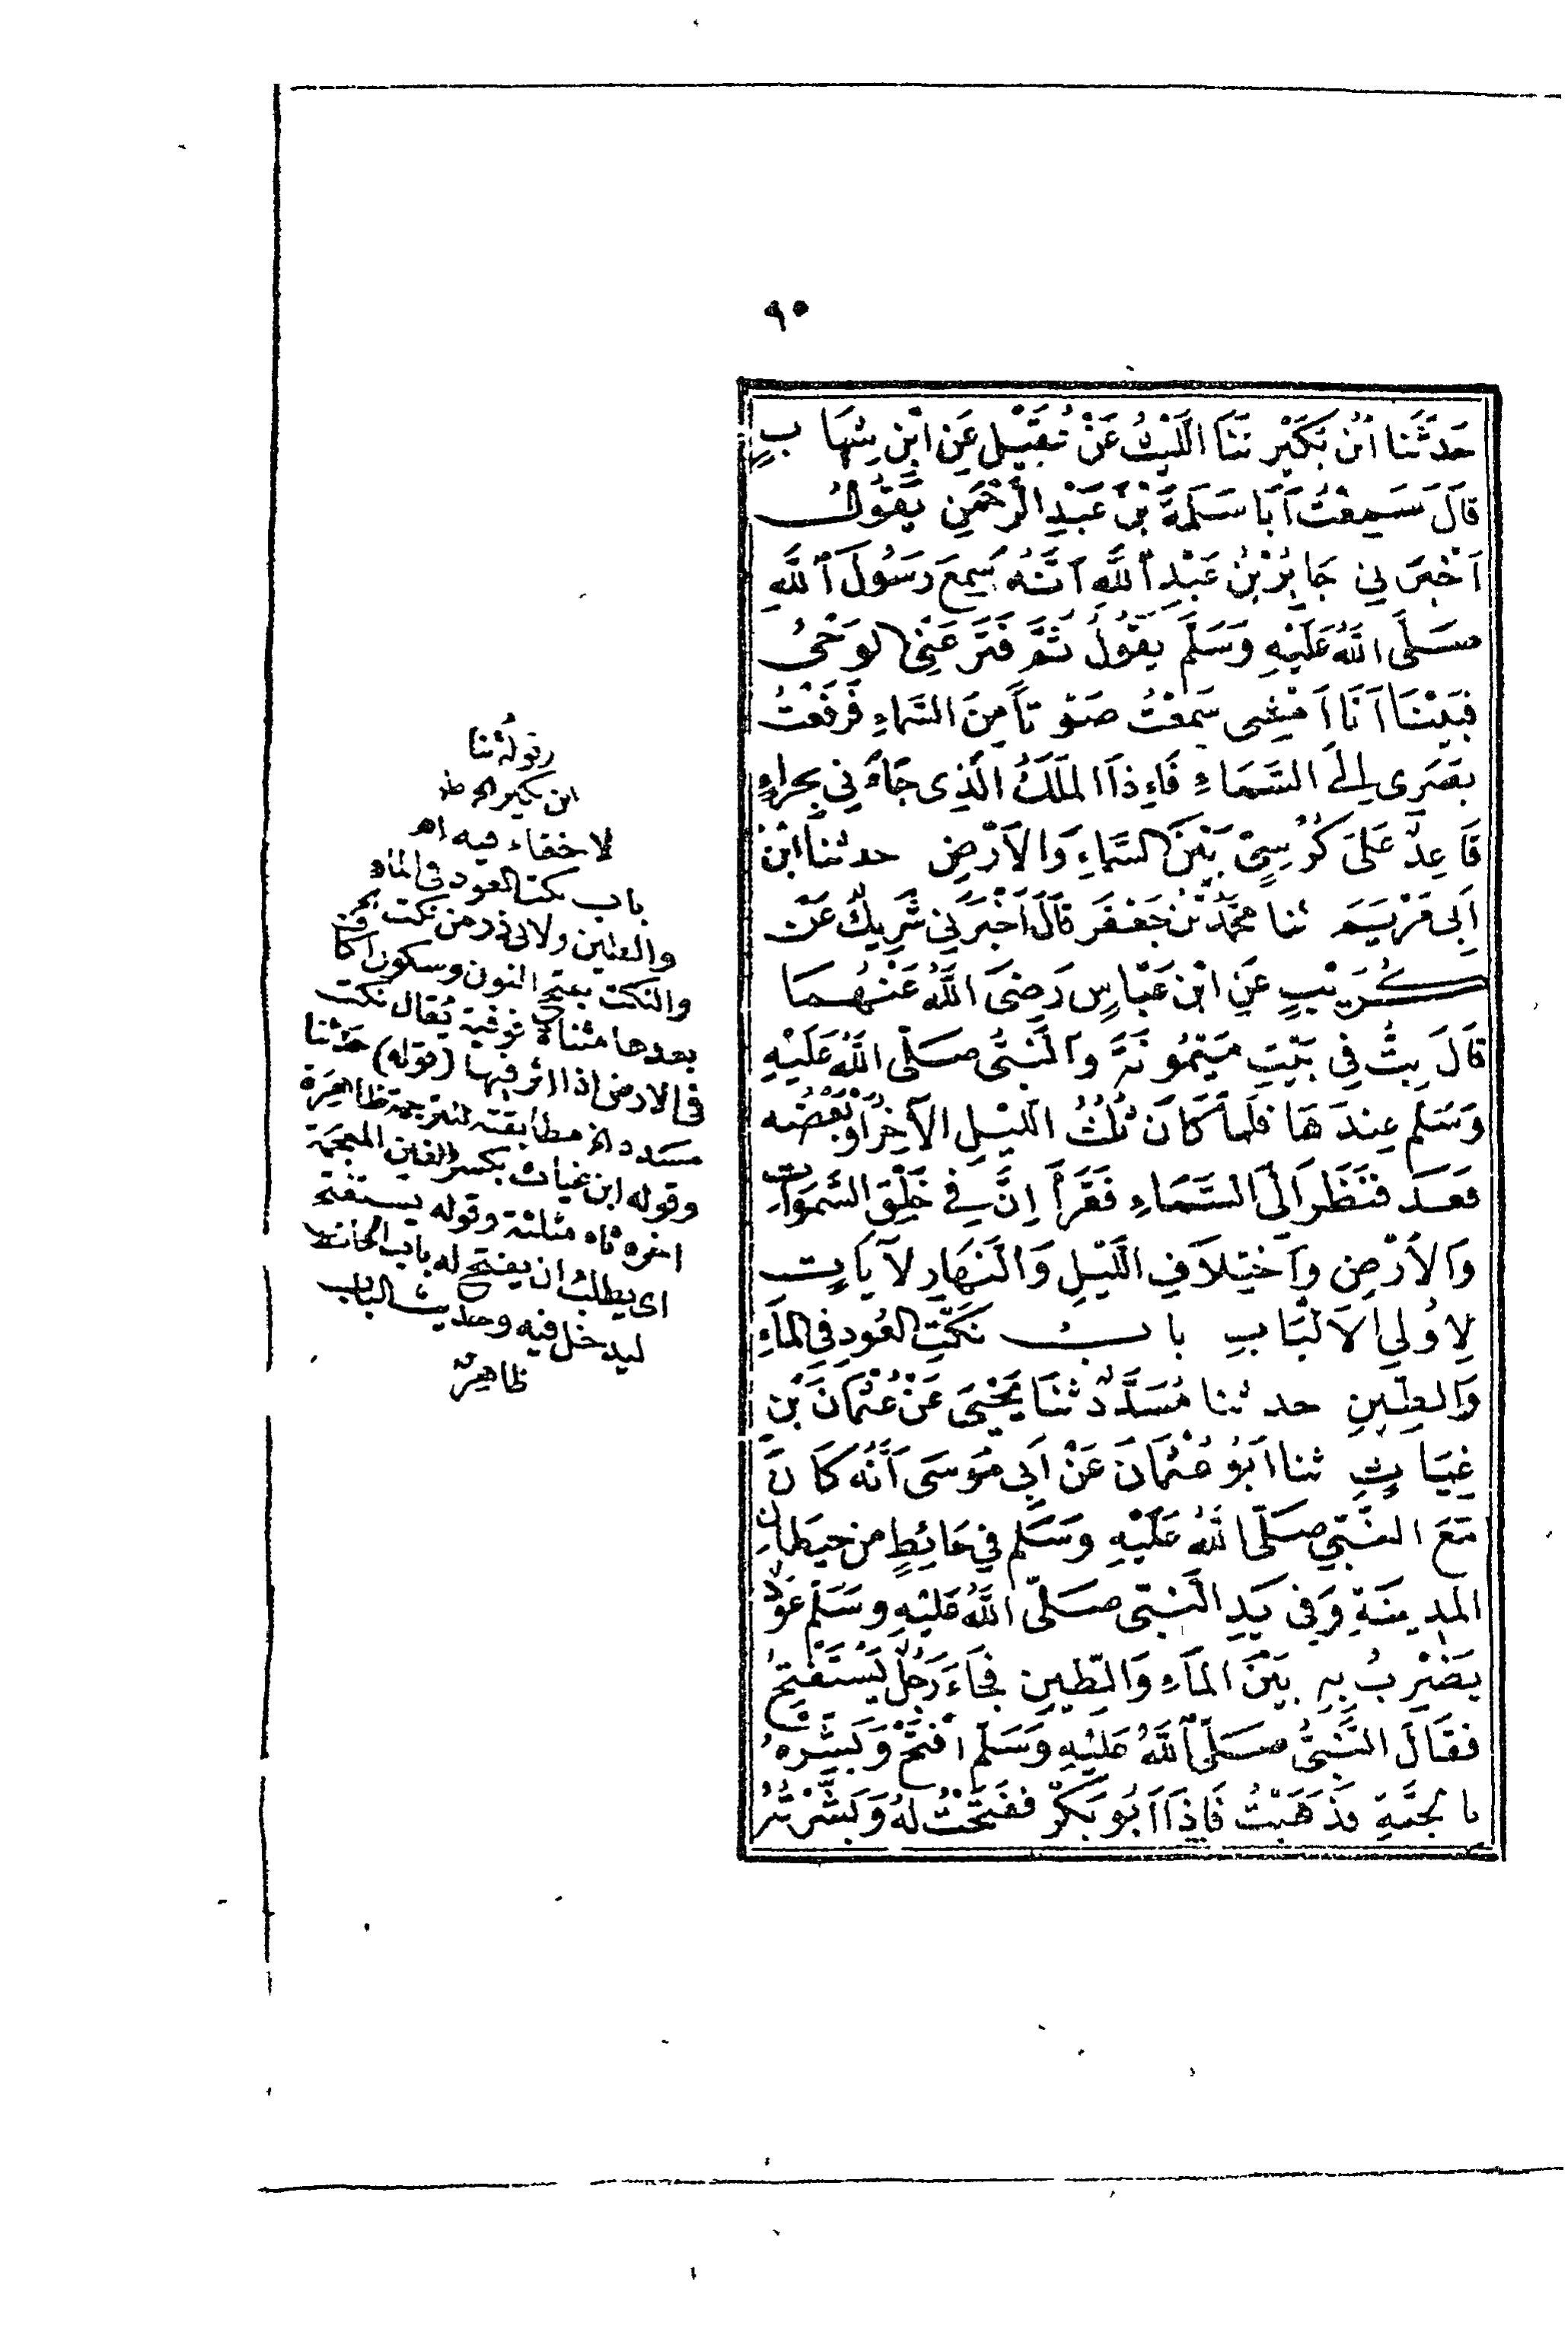 ٩٠
حَدَّثَنَا ابْنُ بُكَيْرٍ ثَنَا اللَّيْثُ عَنْ عُقَيْلٍ عَنِ ابْنِ شِهَابٍ
قَالَ سَمِعْتُ أَبَا سَلَمَةَ بْنَ عَبْدِ الرَّحْمَنِ يَقُولُ
أَخْبَرَنِي جَابِرُ بْنُ عَبْدِ اللَّهِ أَنَّهُ سَمِعَ رَسُولَ اللَّهِ
صَلَّى اللَّهُ عَلَيْهِ وَسَلَّمَ يَقُولُ ثُمَّ فَتَرَ عَنِّي الْوَحْيُ
فَبَيْنَا أَنَا أَمْشِي سَمِعْتُ صَوْتًا مِنَ السَّمَاءِ فَرَفَعْتُ
بَصَرِي إِلَى السَّمَاءِ فَإِذَا الْمَلَكُ الَّذِي جَاءَنِي بِحِرَاءٍ
قَاعِدٌ عَلَى كُرْسِيٍّ بَيْنَ السَّمَاءِ وَالْأَرْضِ حدثنا ابْنُ
أَبِي مَرْيَمَ ثنا مُحَمَّدُ بْنُ جَعْفَرٍ قَالَ أَخْبَرَنِي شَرِيكٌ عَنْ
كُرَيْبٍ عَنِ ابْنِ عَبَّاسٍ رَضِيَ اللَّهُ عَنْهُمَا
قَالَ بِتُّ فِي بَيْتِ مَيْمُونَةَ وَالنَّبِيُّ صَلَّى اللَّهُ عَلَيْهِ
وَسَلَّمَ عِنْدَهَا فَلَمَّا كَانَ ثُلُثُ اللَّيْلِ الْآخِرُ أَوْ بَعْضُهُ
قَعَدَ فَنَظَرَ إِلَى السَّمَاءِ فَقَرَأَ إِنَّ فِي خَلْقِ السَّمَوَاتِ
وَالْأَرْضِ وَاخْتِلَافِ اللَّيْلِ وَالنَّهَارِ لَآيَاتٍ
لِأُولِي الْأَلْبَابِ بابُ نَكْتِ الْعُودِ فِي الْمَاءِ
وَالطِّينِ حدثنا مُسَدَّدٌ ثَنَا يَحْيَى عَنْ عُثْمَانَ بْنِ
غِيَاثٍ ثنا أَبُو عُثْمَانَ عَنْ أَبِي مُوسَى أَنَّهُ كَانَ
مَعَ النَّبِيِّ صَلَّى اللَّهُ عَلَيْهِ وَسَلَّمَ فِي حَائِطٍ مِنْ حِيطَانِ
الْمَدِينَةِ وَفِي يَدِ النَّبِيِّ صَلَّى اللَّهُ عَلَيْهِ وَسَلَّمَ عُودٌ
يَضْرِبُ بِهِ بَيْنَ الْمَاءِ وَالطِّينِ فَجَاءَ رَجُلٌ يَسْتَفْتِحُ
فَقَالَ النَّبِيُّ صَلَّى اللَّهُ عَلَيْهِ وَسَلَّمَ افْتَحْ وَبَشِّرْهُ
بِالْجَنَّةِ فَذَهَبْتُ فَإِذَا أَبُو بَكْرٍ فَفَتَحْتُ لَهُ وَبَشَّرْتُهُ
(قوله ثنا
ابن بكير الخ
لا خفاء فيه اه
باب نكت العود في الماء
والطين ولابي ذر من نكت
والنكت بفتح النون وسكون الكاف
بعدها مثناة فوقية يقال نكت
في الارض اذا اثر فيها (قوله) حدثنا
مسدد الخ مطابقته للترجمة ظاهرة
وقوله ابن غياث بكسر الغين المعجمة
اخره ثاء مثلثة وقوله يستفتح
اى يطلب ان يفتح له باب الحائط
ليدخل فيه وحديث الباب
ظاهر